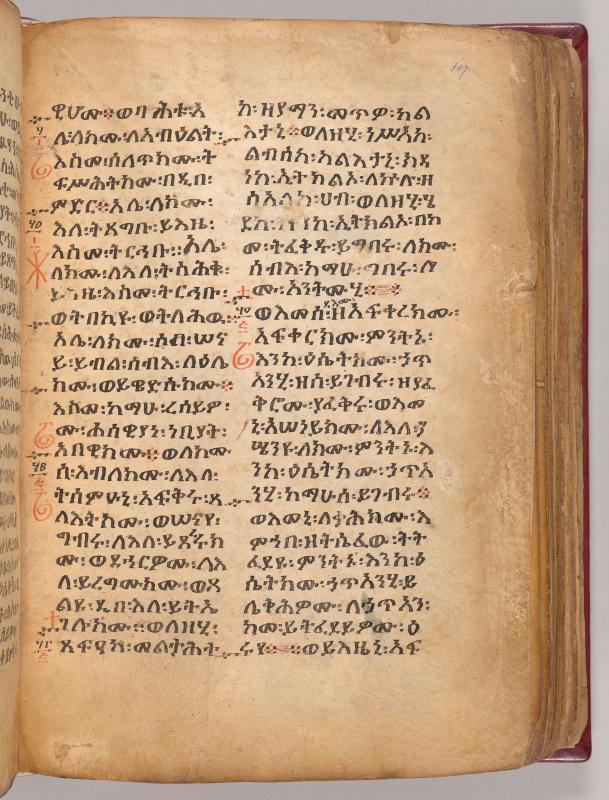 107
ዊሆሙ፡፡ወባሕቱ፡አ
ሌ፡ለክሙ፡ለአብዕልት፡
እስመ፡ሰለጥክሙ፡ት
ፍሥሕትክሙ፡በዲበ፡
ምድር፡፡አሌ፡ለክሙ፡
እለ፡ትጸግቡ፡ይእዜ፡
እስመ፡ትርኅቡ፡፡አሌ፡
ለክሙ፡ለእለ፡ትስሕቁ፡
ይእዜ፡እስመ፡ትርኅቡ፡
ወትበክዩ፡ወትላሕዉ፡፡
አሌ፡ለክሙ፡ሶበ፡ሠና
ይ፡ይብል፡ሰብእ፡ለዕሌ
ክሙ፡ወይዌድሱክሙ፡፡
እስመ፡ከማሁ፡ረሰይዎ፡
ሙ፡ሐሰዊያነ፡ነቢያት፡
አበዊክሙ፡፡ወለክሙ
ሰ፡እብለክሙ፡ለእለ፡
ትሰምዑኒ፡አፍቅሩ፡ጸ
ላእትክሙ፡ወሠናየ፡
ግብሩ፡ለእለ፡ይጸርሩክ
ሙ፡ወደኀርዎሙ፡ለእ
ለ፡ይረግሙክሙ፡ወጸ
ልዩ፡ዲበ፡እለ፡ይትኤ
ገሉክሙ፡፡ወለዘሂ፡
ጸፍዓከ፡መልታሕት
ከ፡ዘየማን፡መጥዎ፡ካል
እታኒ፡፡ወለዘሂ፡ነሥአከ፡
ልብሰከ፡ካልእታኒ፡ክዳ
ነከ፡ኢትክልኦ፡ለኵሉ፡ዘ
ሰአለከ፡ሀብ፡ወለዘሂ፡ሄ
ደከ፡ንዋየከ፡ኢትክልኦ፡በከ
መ፡ትፈቅዱ፡ይግበሩ፡ለክሙ፡
ሰብእ፡ከማሁ፡ግበሩ፡ሎ
ሙ፡አንትሙሂ፡፡
ወእመሰ፡ዘአፍቀረክሙ፡
አፍቀርክሙ፡ምንትኑ፡
እንከ፡ዕሴትክሙ፡ኃጥ
አንሂ፡ዘሰ፡ይገብሩ፡ዘያፈ
ቅሮሙ፡ያፈቅሩ፡ወእመ
ኒ፡አሠነይክሙ፡ለእለ፡ያ
ሤንዩ፡ለክሙ፡ምንትኑ፡እ
ንከ፡ዕሴትክሙ፡ኃጥአ
ንሂ፡ከማሁሰ፡ይገብሩ፡፡
ወእመኒ፡ለቃሕክሙ፡እ
ምኀበ፡ዘትሴፈው፡ትት
ፈደዩ፡ምንትኑ፡እንከ፡ዕ
ሴትክሙ፡ኃጥአንሂ፡ይ
ሌቅሕዎሙ፡ለኃጥአን፡
ከመ፡ይትፈደይዎሙ፡ዕ
ሩየ፡፡ወይእዜኒ፡አፍ